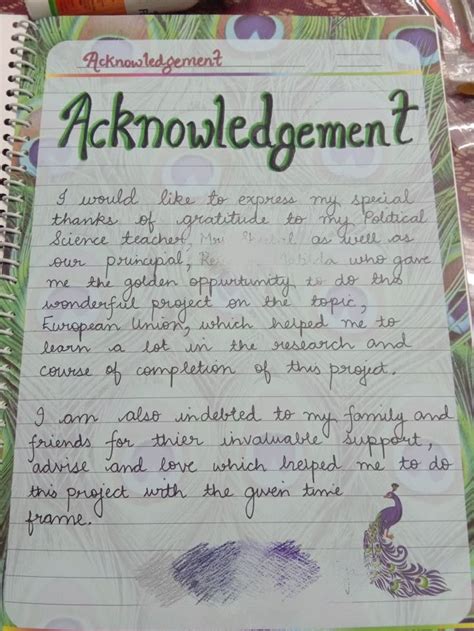 Acknowledgement
Acknowledgement
I would like to express my special
thanks of gratitude to my Political
Science teacher, as well as
our principal, who gave
me the golden oppurtunity to do this
wonderful project on the topic,
European Union, which helped me to
learn a lot in the research and
course of completion of this project.
I am also indebted to my family and
friends for thier invaluable support,
advise and love which helped me to do
this project with the given time
frame.